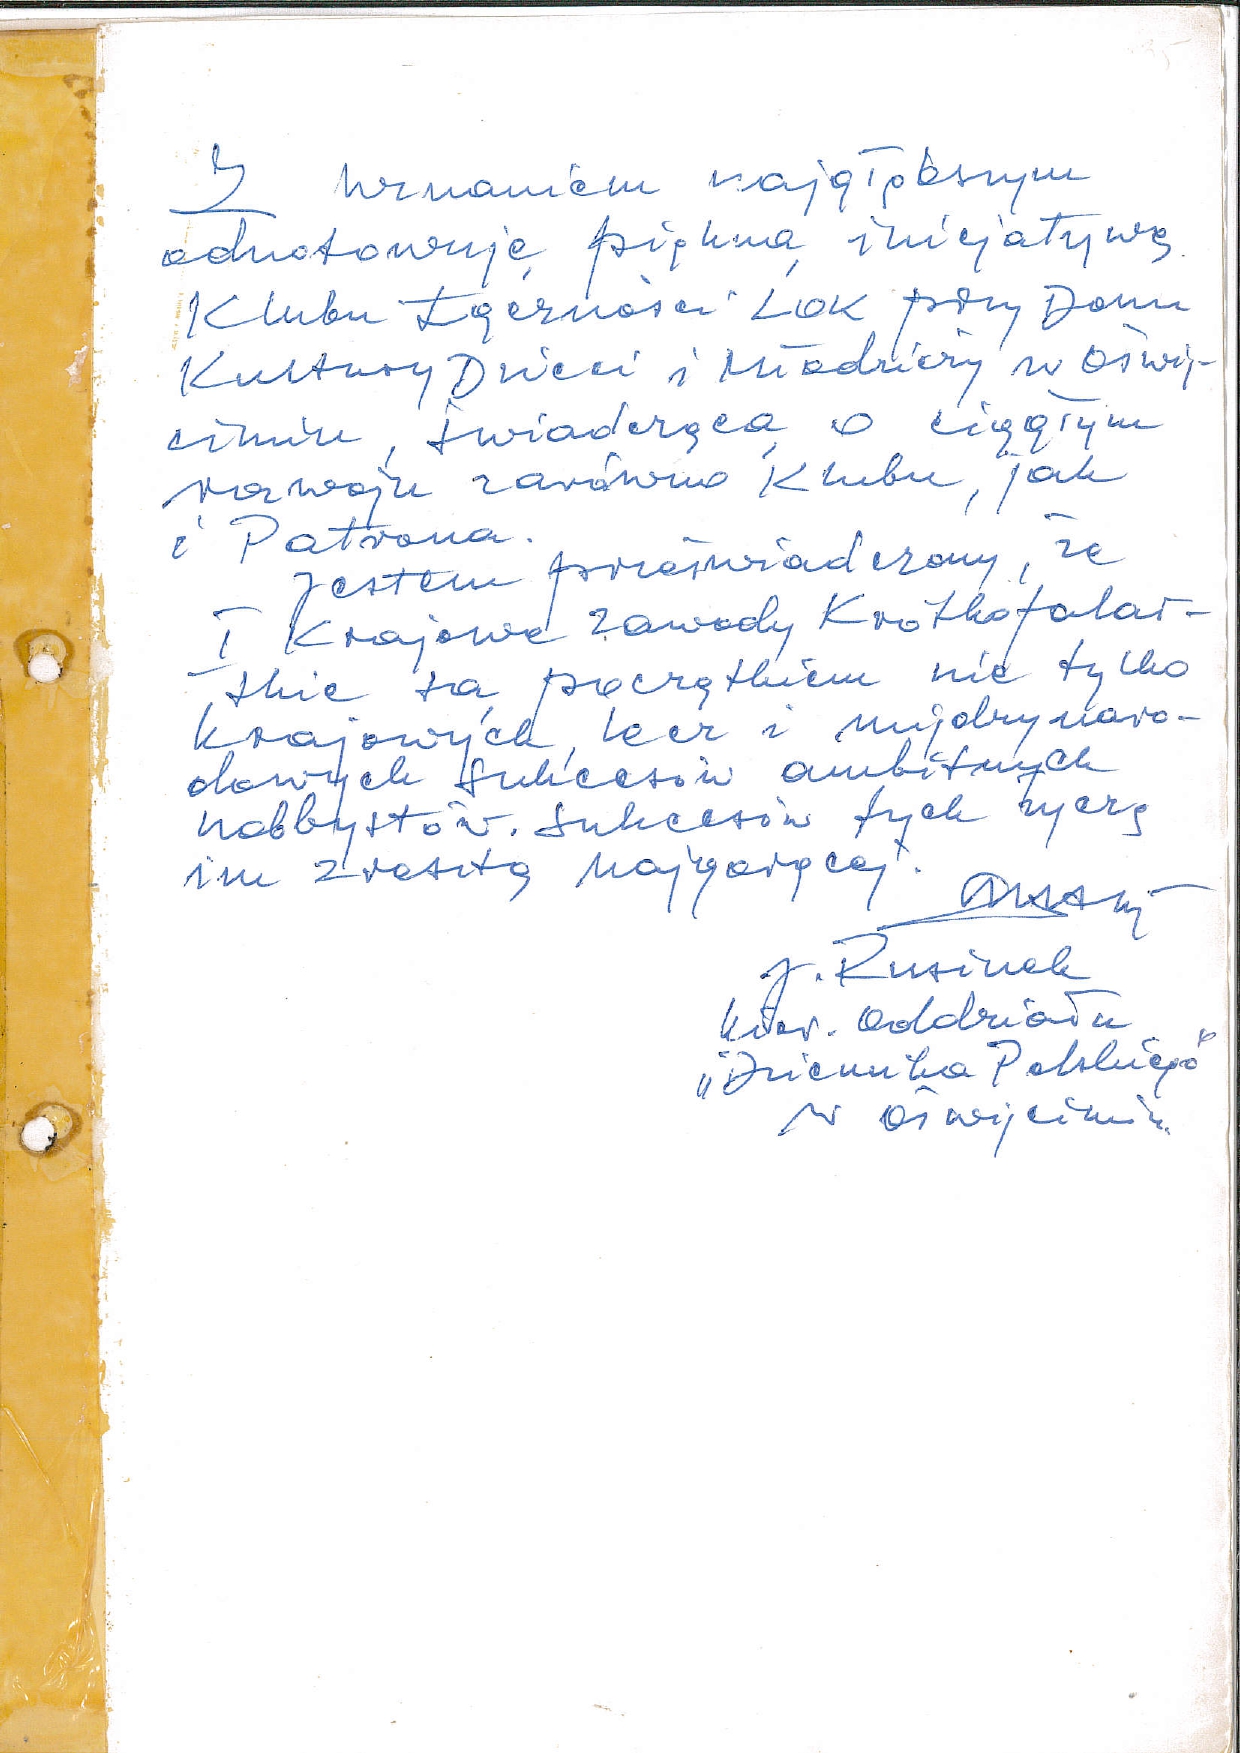 Z uznaniem najgłębszym
odnotowuję piękną inicjatywę
Klubu Łączności LOK przy Domu
Kultury Dzieci i Młodzieży w Oświę-
cimiu, świadczącą o ciągłym
rozwoju zarówno Klubu, jak
i Patrona.
Jestem przeświadczony, że
I Krajowe Zawody Krótkofalar-
skie są początkiem nie tylko
krajowych, lecz i międzynaro-
dowych sukcesów ambitnych
hobbystów. Sukcesów tych życzę
im zresztą najgoręcej.
J. Rusinek
kier. Oddziału
"Dziennika Polskiego"
w Oświęcimiu.